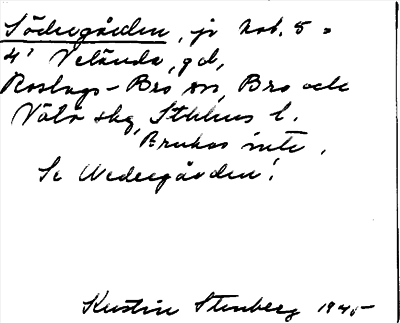 Södergården, jr kob. 5 =
4' Velända, gd,
Roslags-Bro sn, Bro och
Vätö skg, Sthlms l.
Brukas inte.
Se Nedergården!
Kerstin Stenberg 1945